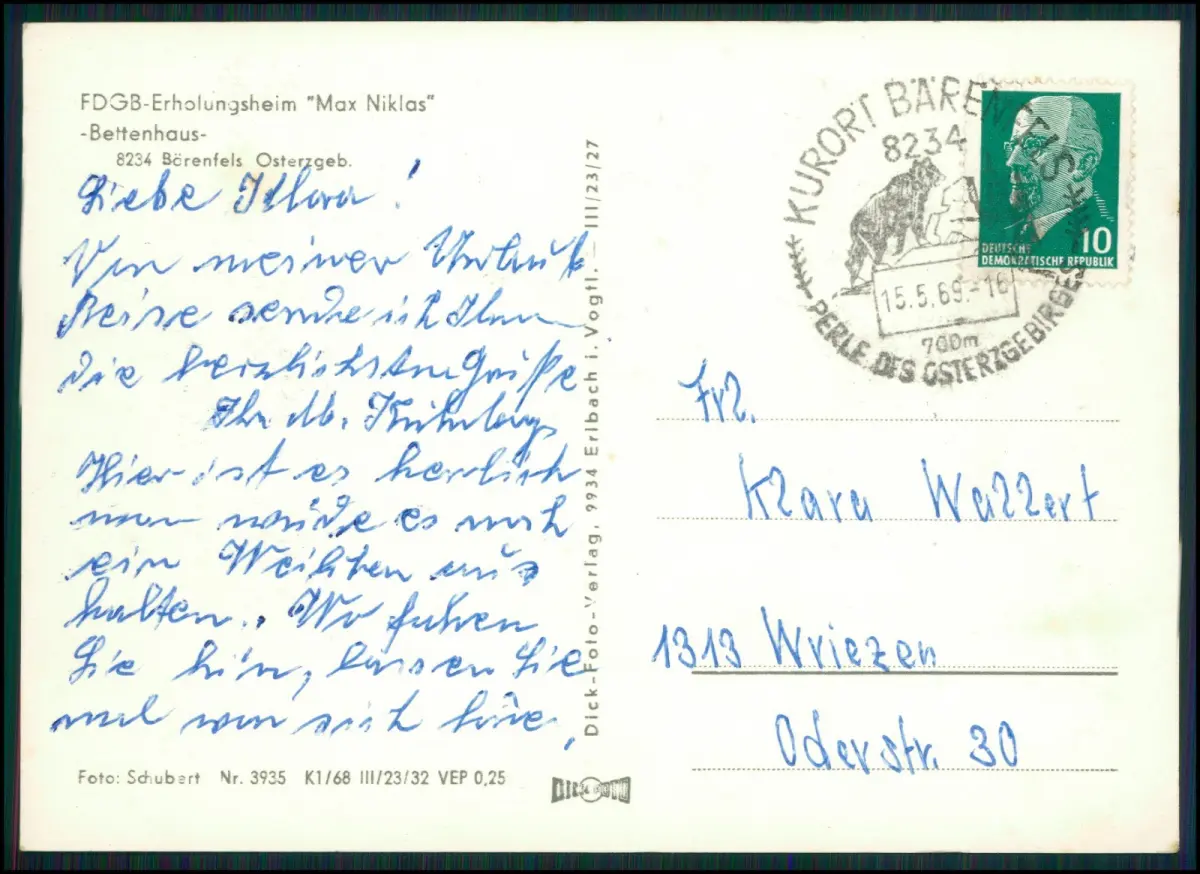 FDGB-Erholungsheim "Max Niklas"
-Bettenhaus-
8234 Bärenfels Osterzgeb.
Liebe
Von meiner Urlaub
Reise sende ich Ihnen
die herzlichsten Grüße
Ihr M.
Hier ist es herrlich
man würde es noch
ein Weilchen aus
halten. Wo fuhren
Sie hin, lassen Sie
mal von sich höre,
Foto: Schubert Nr. 3935 K1/68 III/23/32 VEP 0,25
Dick-Foto-Verlag, 9934 Erlbach i. Vogtl. — III/23/27
DICK FOTO
KURORT BÄRENFELS
8234
15.5.69.-16
700m
PERLE DES OSTERZGEBIRGES
10
DEUTSCHE
DEMOKRATISCHE REPUBLIK
Frl.
Klara Wallert
1313 Wriezen
Oderstr. 30